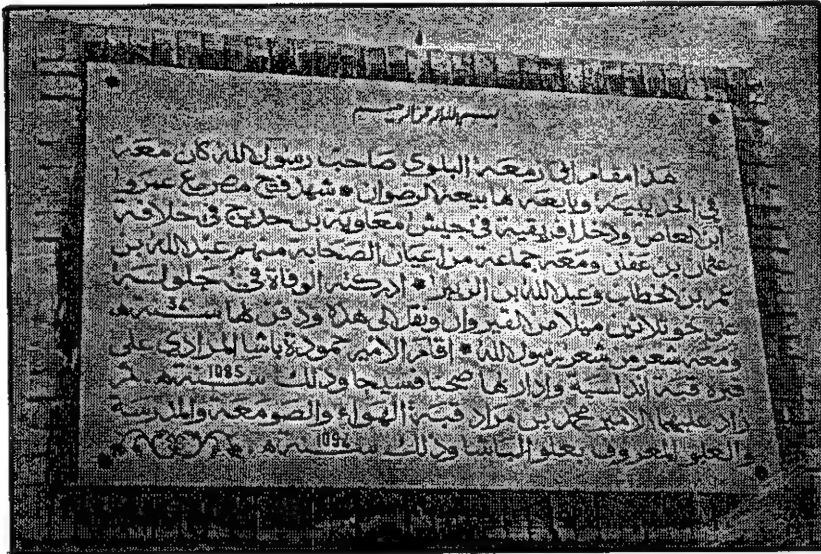 بسم الله الرحمن الرحيم
هذا مقام أبي زمعة البلوي صاحب رسول الله كان معه
في الحديبية وبايعه بها بيعة الرضوان * شهد فتح مصر مع عمرو
ابن العاص ودخل افريقية في جيش معاوية بن حديج في خلافة
عثمان بن عفان ومعه جماعة من أعيان الصحابة منهم عبد الله بن
عمر بن الخطاب وعبد الله بن الزبير * ادركته الوفاة في جلولة
على نحو ثلاثين ميلا من القيروان ونقل إلى هذه ودفن بها سنة 34 هـ
ومعه شعر من شعر رسول الله * اقام الأمير حمودة باشا المرادي على
قبره قبة أندلسية وأدار بها صحنا فسيحا وذلك سنة 1085 هـ. ثم
زاد عليها الأمير محمد بن مراد قبة الهواء والصومعة والمدرسة
والعلو المعروف بعلو الباشا وذلك سنة 1094 هـ.